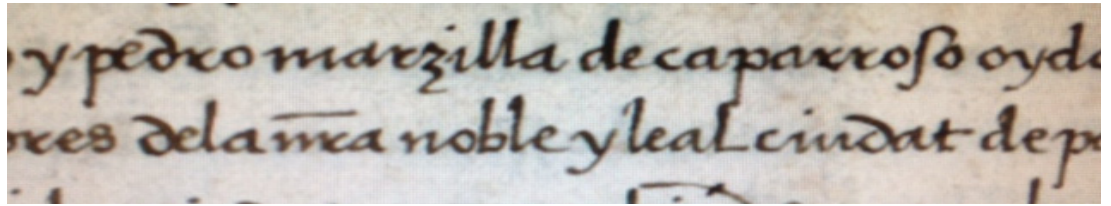 y pedro marzilla de caparroso oydo
ores dela nra noble y leal ciudat de pa